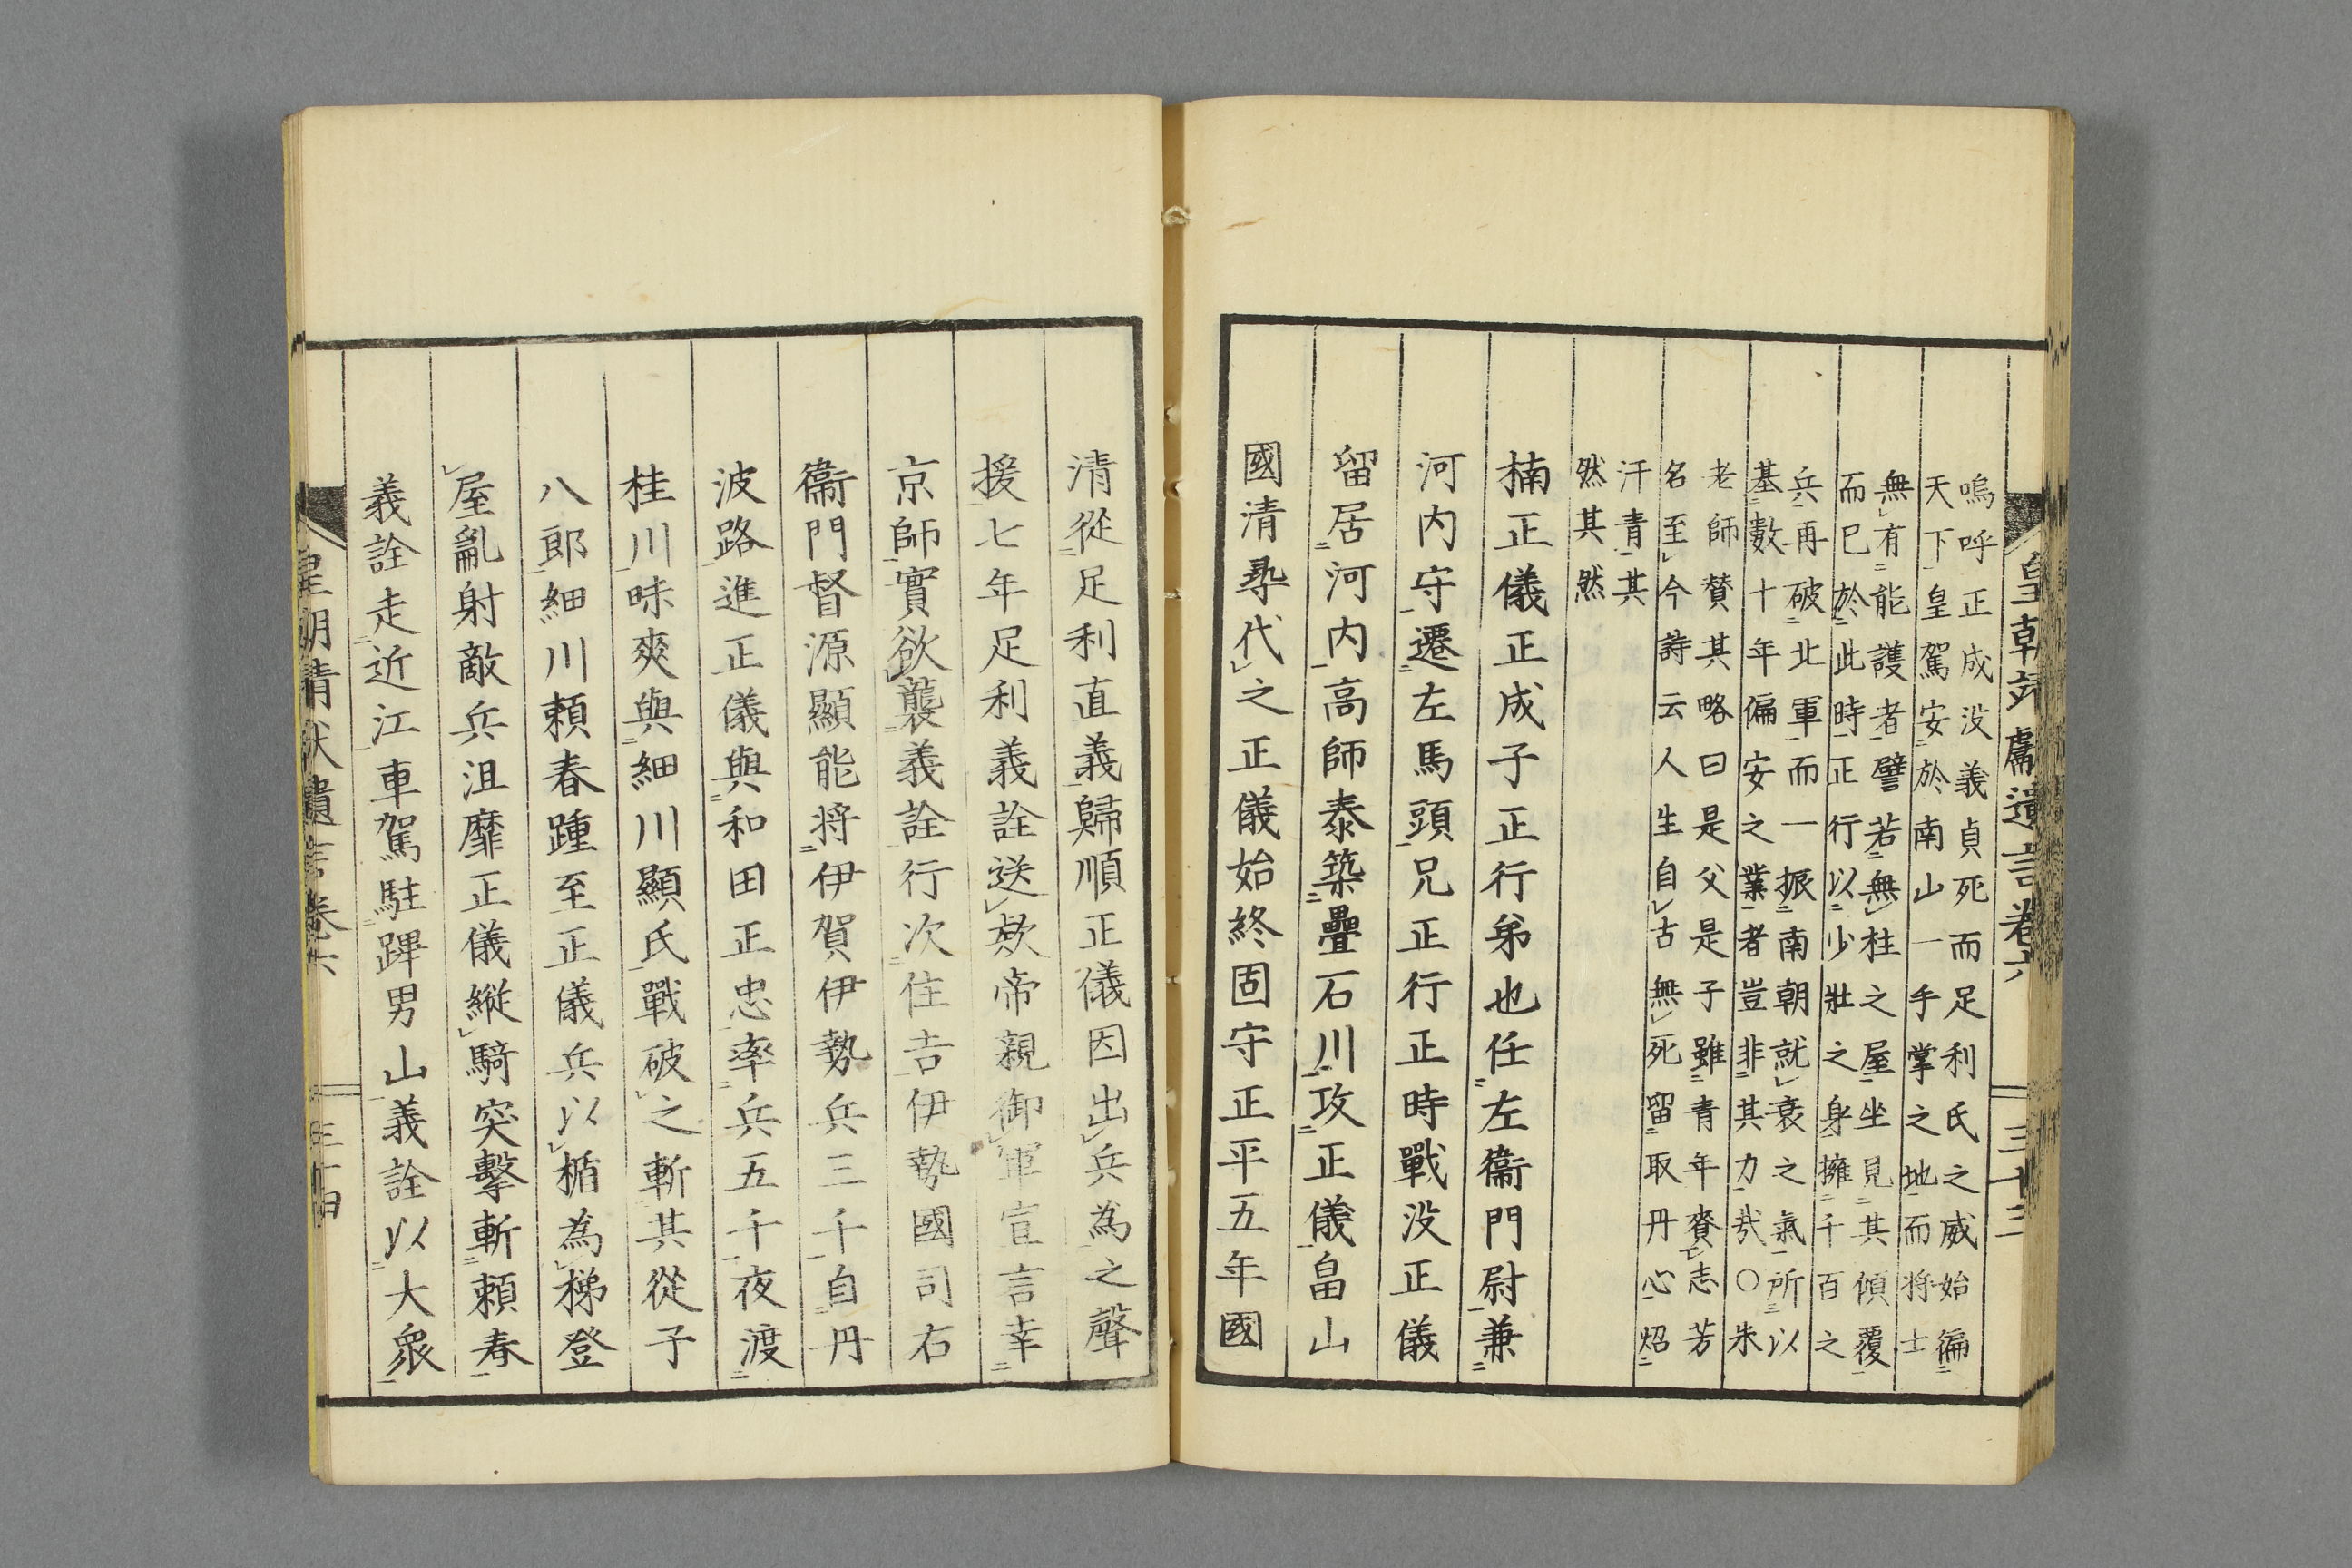 嗚呼正成没義貞死而足利氏之威始徧
天下皇駕安於南山一手掌之地而将士
無有能護者譬若無柱之屋坐見其傾覆
而已於此時正行以少壯之身擁千百之
兵再破北軍而一振南朝就衰之氣所以
基數十年偏安之業者豈非其力㢤〇朱
老師賛其略曰是父是子雖青年賚志芳
名至今詩云人生自古無死留取丹心炤
汗青其
然其然
楠正儀正成子正行弟也任左衞門尉兼
河内守遷左馬頭兄正行正時戰没正儀
留居河内高師泰築壘石川攻正儀畠山
國清尋代之正儀始終固守正平五年國
皇朝靖獻遺言卷六
三十三
清從足利直義歸順正儀因出兵為之聲
援七年足利義詮送欵帝親御軍宣言幸
京師實欲襲義詮行次住吉伊勢國司右
衞門督源顯能将伊賀伊勢兵三千自丹
波路進正儀與和田正忠率兵五千夜渡
桂川昧爽與細川顯氏戰破之斬其從子
八郎細川頼春踵至正儀兵以楯為梯登
屋亂射敵兵沮靡正儀縱騎突擊斬頼春
義詮走近江車駕駐蹕男山義詮以大衆
皇朝靖献遺言卷六